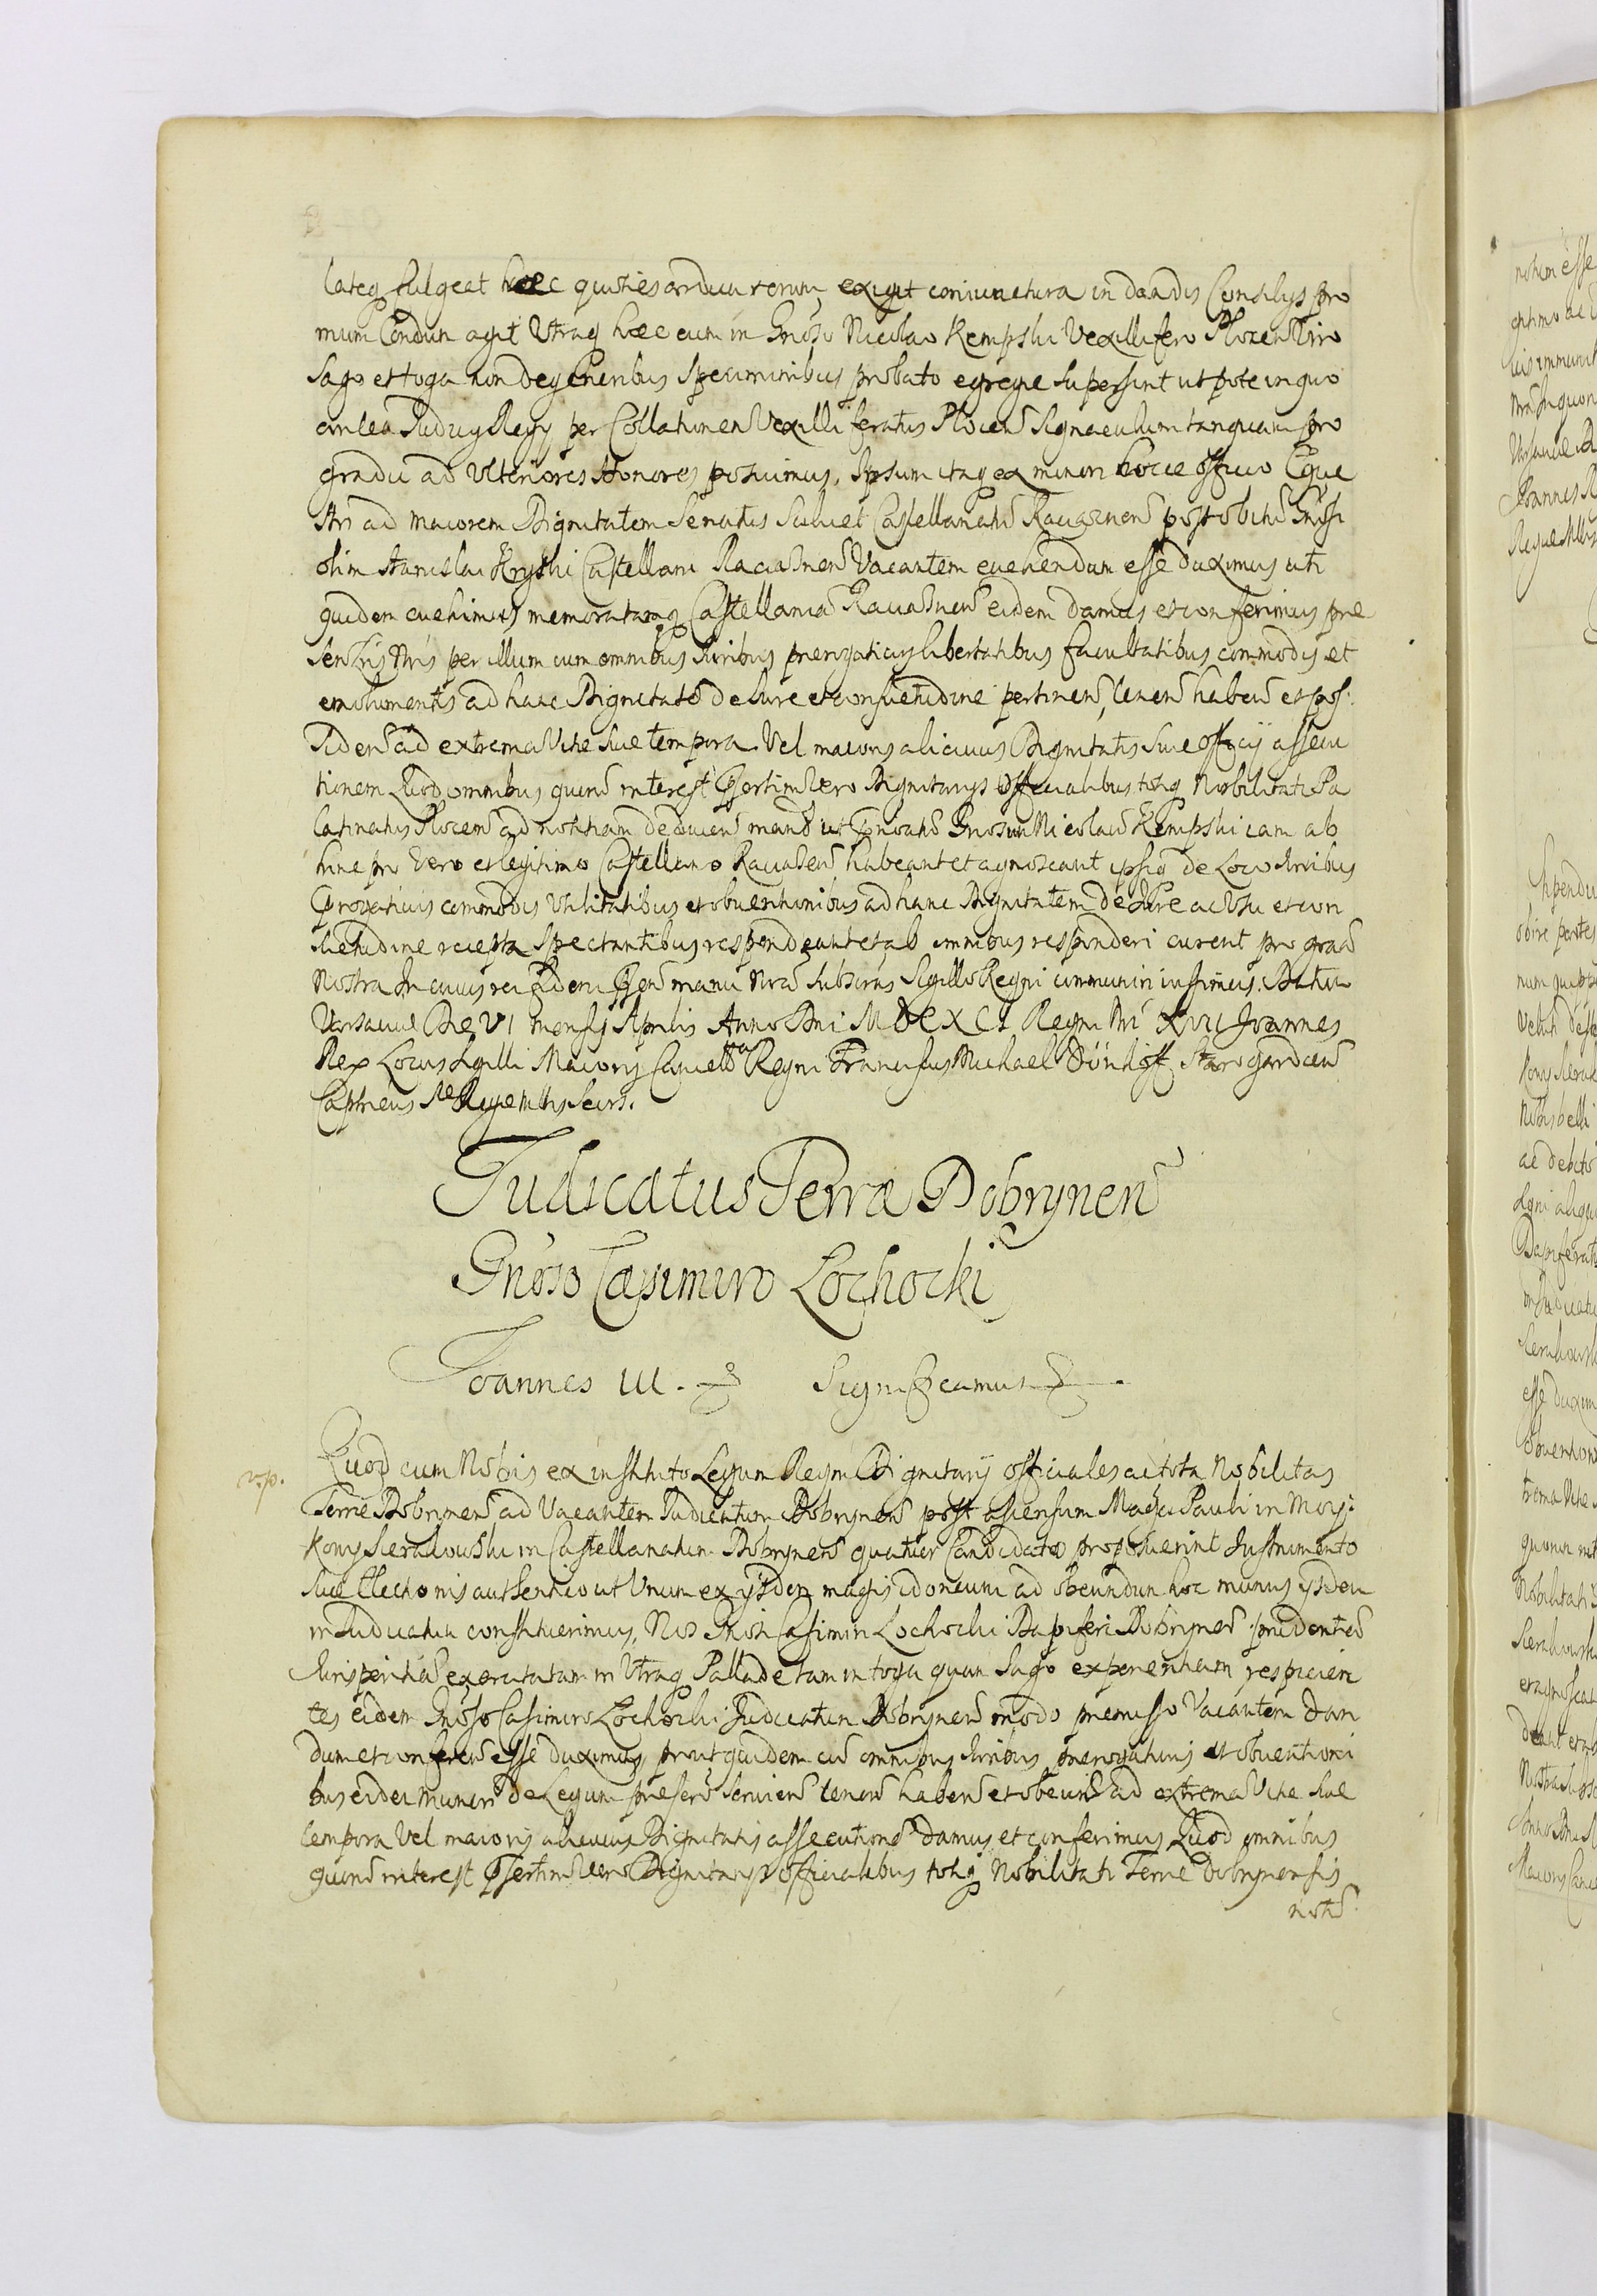 lateq fulgeat haec quoties ardua rerum exigit coniunctura in dandis Consilys pro
mum Condum agit Utraq haec cum in Gnoso Nicolao Kempski Vexillifero Plocen Viro
Sago et toga non degeneribus speciminibus probato egregie supersint utpote in quo
antea Iudicy Regy per Collationem Vexilliferatus Plocen Signaculum tanquam pro
gradu ad Ulteriores Honores posuimus, Ipsum itaq ex minori hocce officio Eque
stri ad maiorem Dignitatem Senatus Scilicet Castellanatu Raciaznen post obitu Gnosi
olim Stanislai Kryski Castellani Raciaznen Vacantem evehendum esse duximus uti
quidem evehimus memoratamq Castellania Raciaznen eidem damus et conferimus pre
sentibs Nris per illum cum omnibus Iuribus prerogativis libertatibus facultatibus commodis et
emolumentis ad hanc Dignitate de Iure et consuetudine pertinen, tenen haben et pos:
siden ad extrema Vitae suae tempora Vel maioris alicuius Dignitatis sive officij assecu
tionem Quod omnibus quoru interest Psertim Vero Dignitarys Officialibus totiq Nobilitati Pa
latinatus Plocen ad notitiam deducen mand ut Pnoatu Gnosum Nicolau Kempski iam ab
hinc pro Vero et legitimo Castellano Raciaznen habeant et agnoscant ipsiq de Loco Iuribus
Prerogativis commodis Utilitatibus et obventionibus ad hanc Dignitatem de Iure ac Usu et con
suetudine recepta Spectantibus respondeant et ab omnibus responderi curent pro graa
Nostra In cuius rei fidem Psen manu Nra subscrip Sigillo Regni communiri iussimus. Datu
Varsaviae Die VI mensis Aprilis Anno Dni MDCXCI Regni Nri XVII Joannes
Rex Locus Sigilli Maioris Cancell Regni Franciscus Michael Dönhoff Starogardien
Capitneus Sae Regiae Mttis Secrs.
Judicatus Terræ Dobrynen
Gnoso Casimiro Lochocki
Joannes III. Significamus
v.p. Quod cum Nobis ex instituto Legum Regni Dignitarij officiales ac tota Nobilitas
Terrae Dobrynen ad Vacantem Judicatum Dobrynen post ascensum Magci Pauli in Mosz:
kowy Sierakowski in Castellanatum Dobrynen quatuor Candidatos proposuerint Instrumento
suae Electionis authentico ut Unum ex ijsdem magis idoneum ad obeundum hoc munus ijsdem
in Iudicatum constituerimus, Nos Gnosi Casimiri Lochocki Dapiferi Dobrynen prudentia
Iurisperitia exercitatam in Utraq Pallade tam in toga quam Sago experientiam respicien
tes eidem Gnoso Casimiro Lochocki Judicatum Dobrynen modo praemisso Vacantem dan
dum et conferen esse duximus prout quidem cu omnibus Iuribus prerogativis et obventioni
bus eidem muneri de Legum praescr servien tenen haben et obeund ad extrema Vitae suae
tempora Vel maioris alicuius Dignitatis assecutione damus et conferimus Quod omnibus
quoru interest Psertim Vero Dignitarijs officialibus totiq Nobilitati Terrae Dobrynensis
notu